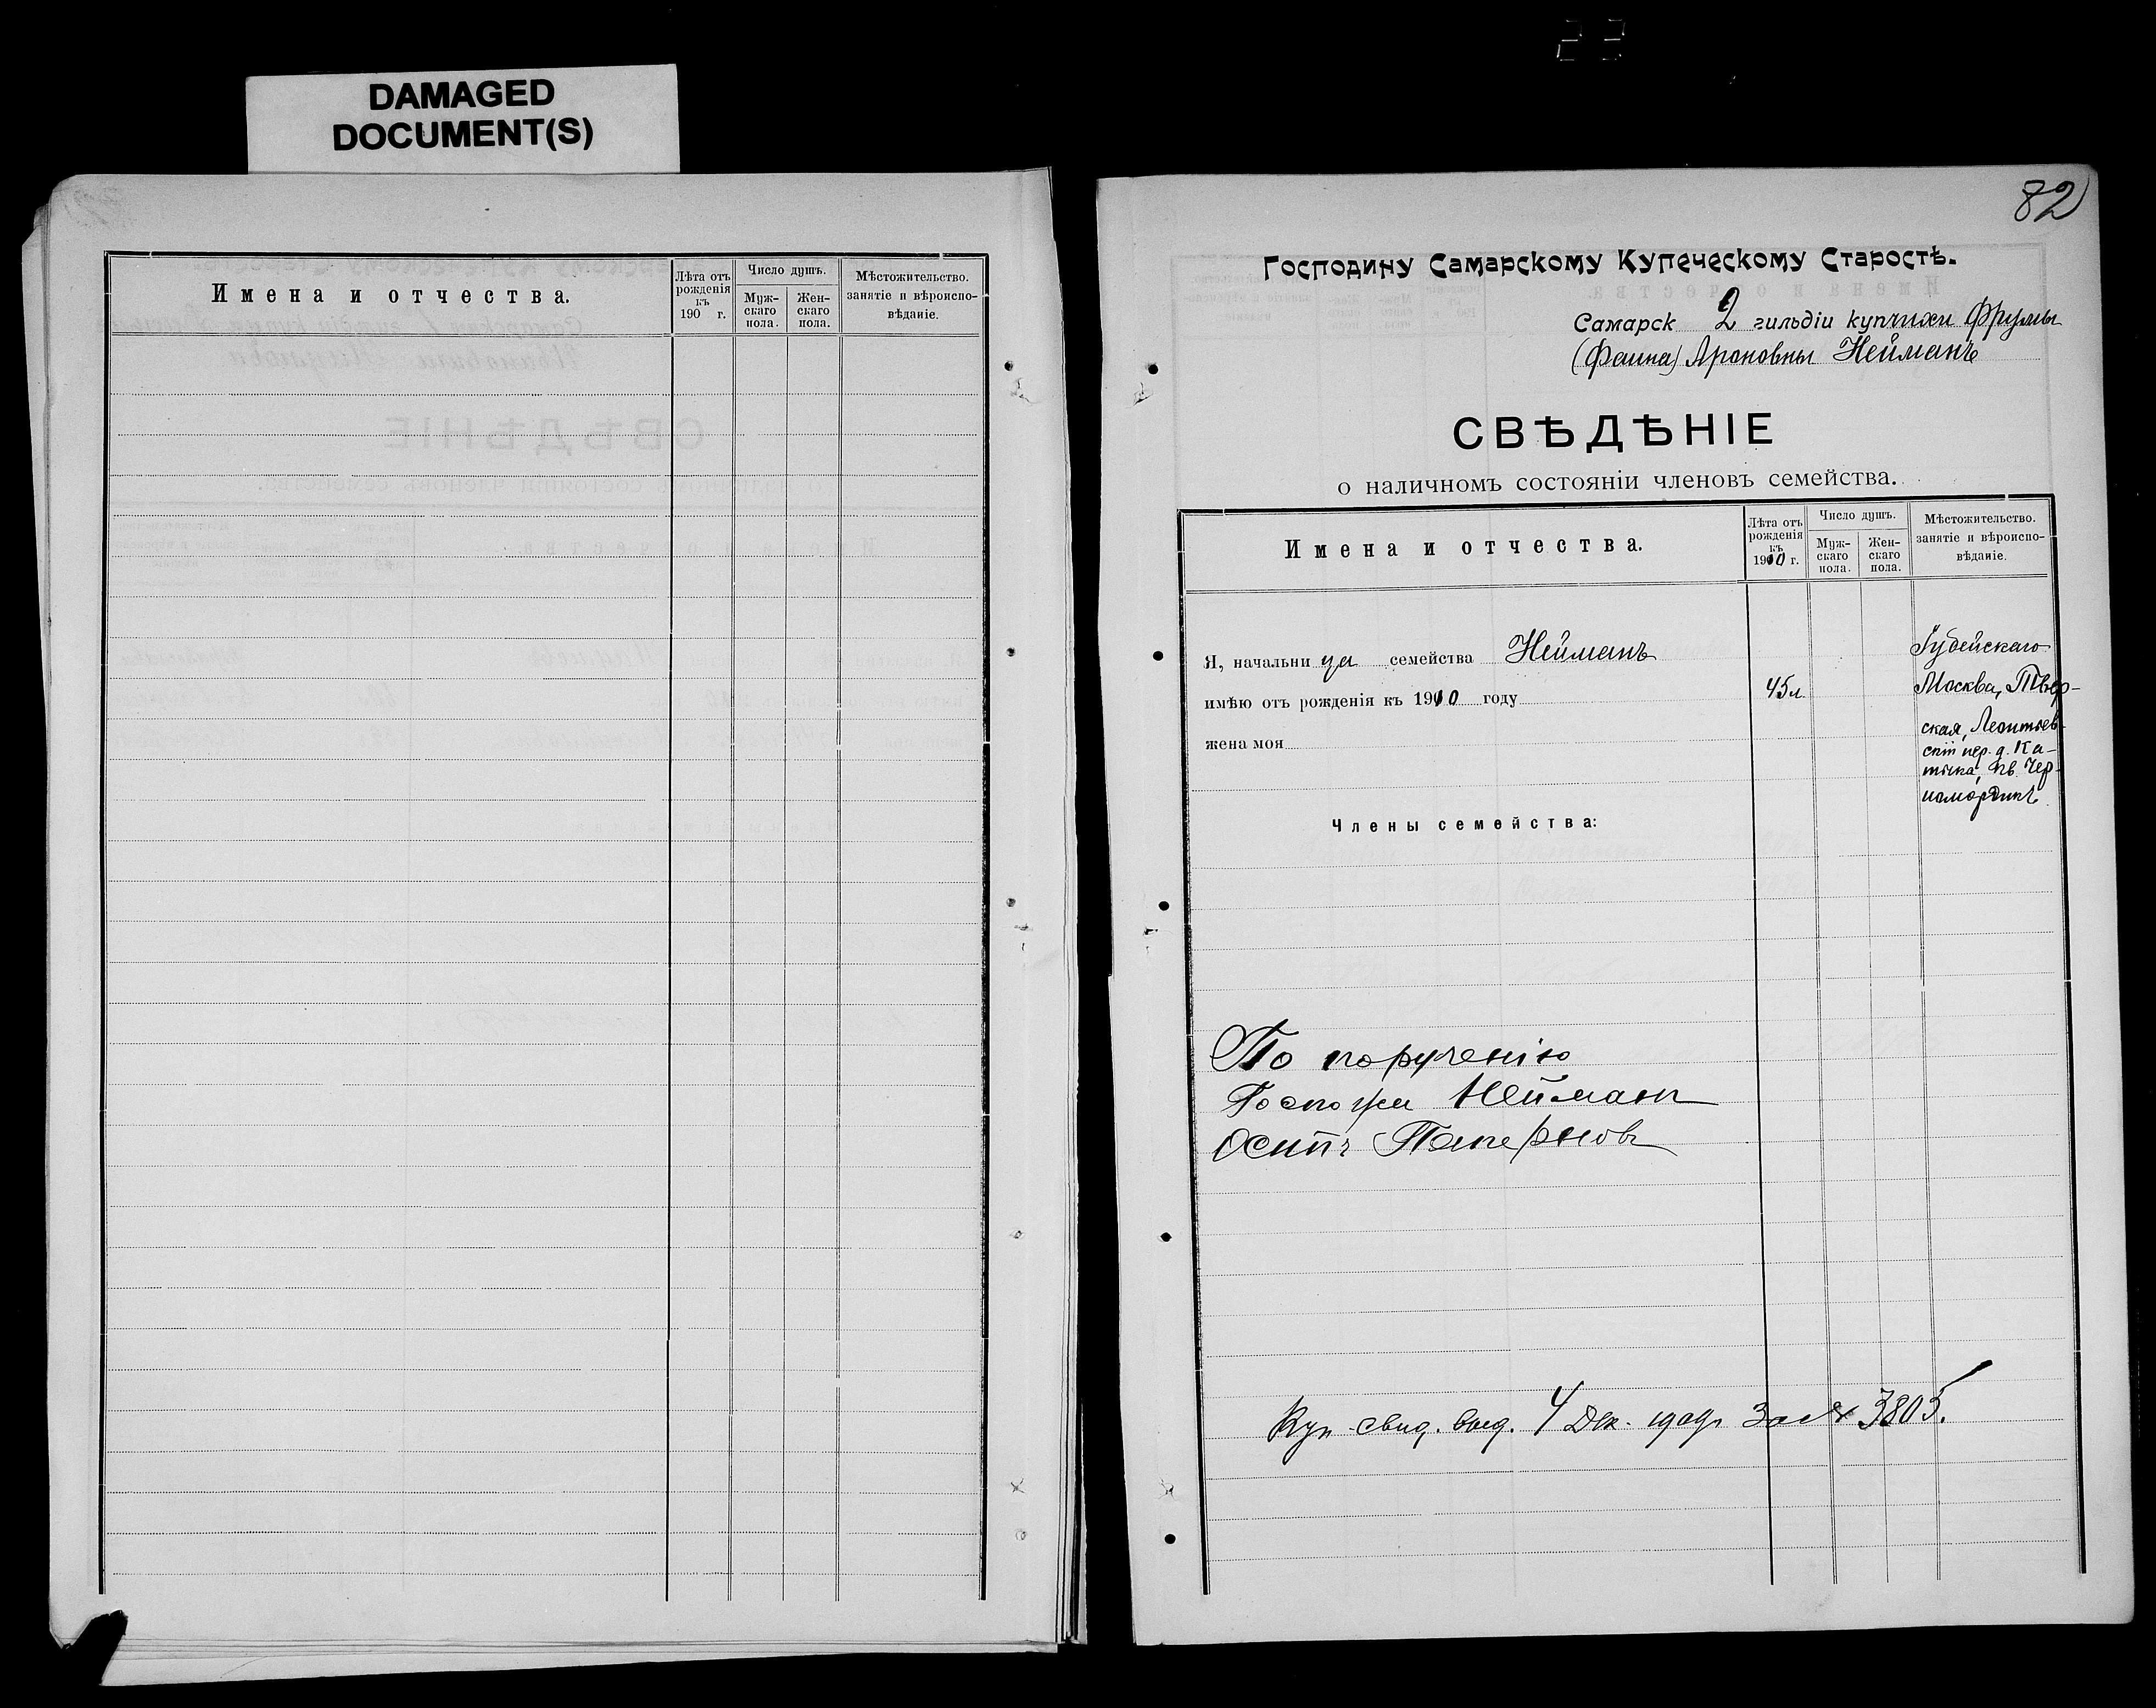 DAMAGED
DOCUMENT(S)
Имена и отчества.
Лѣта отъ
рожденія
къ
190 г.
Число душъ.
Муж-
скаго
пола.
Жен-
скаго
пола.
Мѣстожительство.
занятіе и вѣроиспо-
вѣданіе.
82
Господину Самарскому Купеческому Старостѣ.
Самарск 2 гильдіи купчихи Фрумы
(Фаина) Ароновны Нейманъ
СВѢДѢНІЕ
о наличномъ состояніи членовъ семейства.
Имена и отчества.
Лѣта отъ
рожденія
къ
1910 г.
Число душъ.
Муж-
скаго
пола.
Жен-
скаго
пола.
Мѣстожительство.
занятіе и вѣроиспо-
вѣданіе.
Я, начальница семейства Нейманъ
имѣю отъ рожденія къ 1910 году 45л.
жена моя
Іудейскаго
Москва, Твер-
ская, Леонтьев-
скій пер. д. Ка-
кв. Чер-
номордикъ
Члены семейства:
По порученію
Госпожи Нейман
Осипъ Паперновъ
Куп. свид. выд. 4 Дек. 1909г. за № 3805.